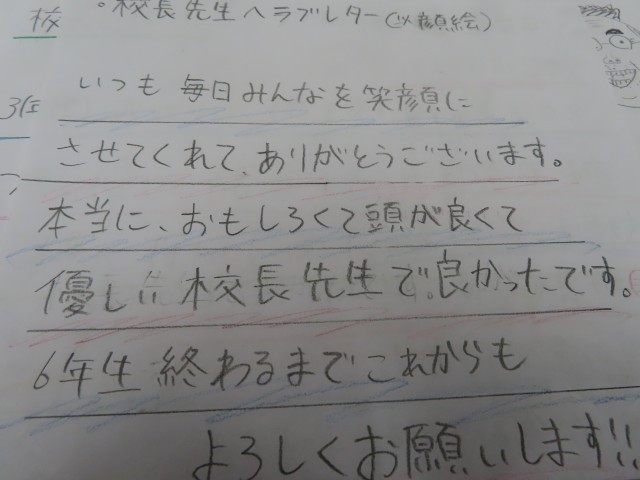 ・校長先生へラブレター(似顔絵)
いつも 毎日みんなを笑顔に
させてくれて、ありがとうございます。
本当に、おもしろくて頭が良くて
優しい校長先生で良かったです。
6年生終わるまでこれからも
よろしくお願いします!!